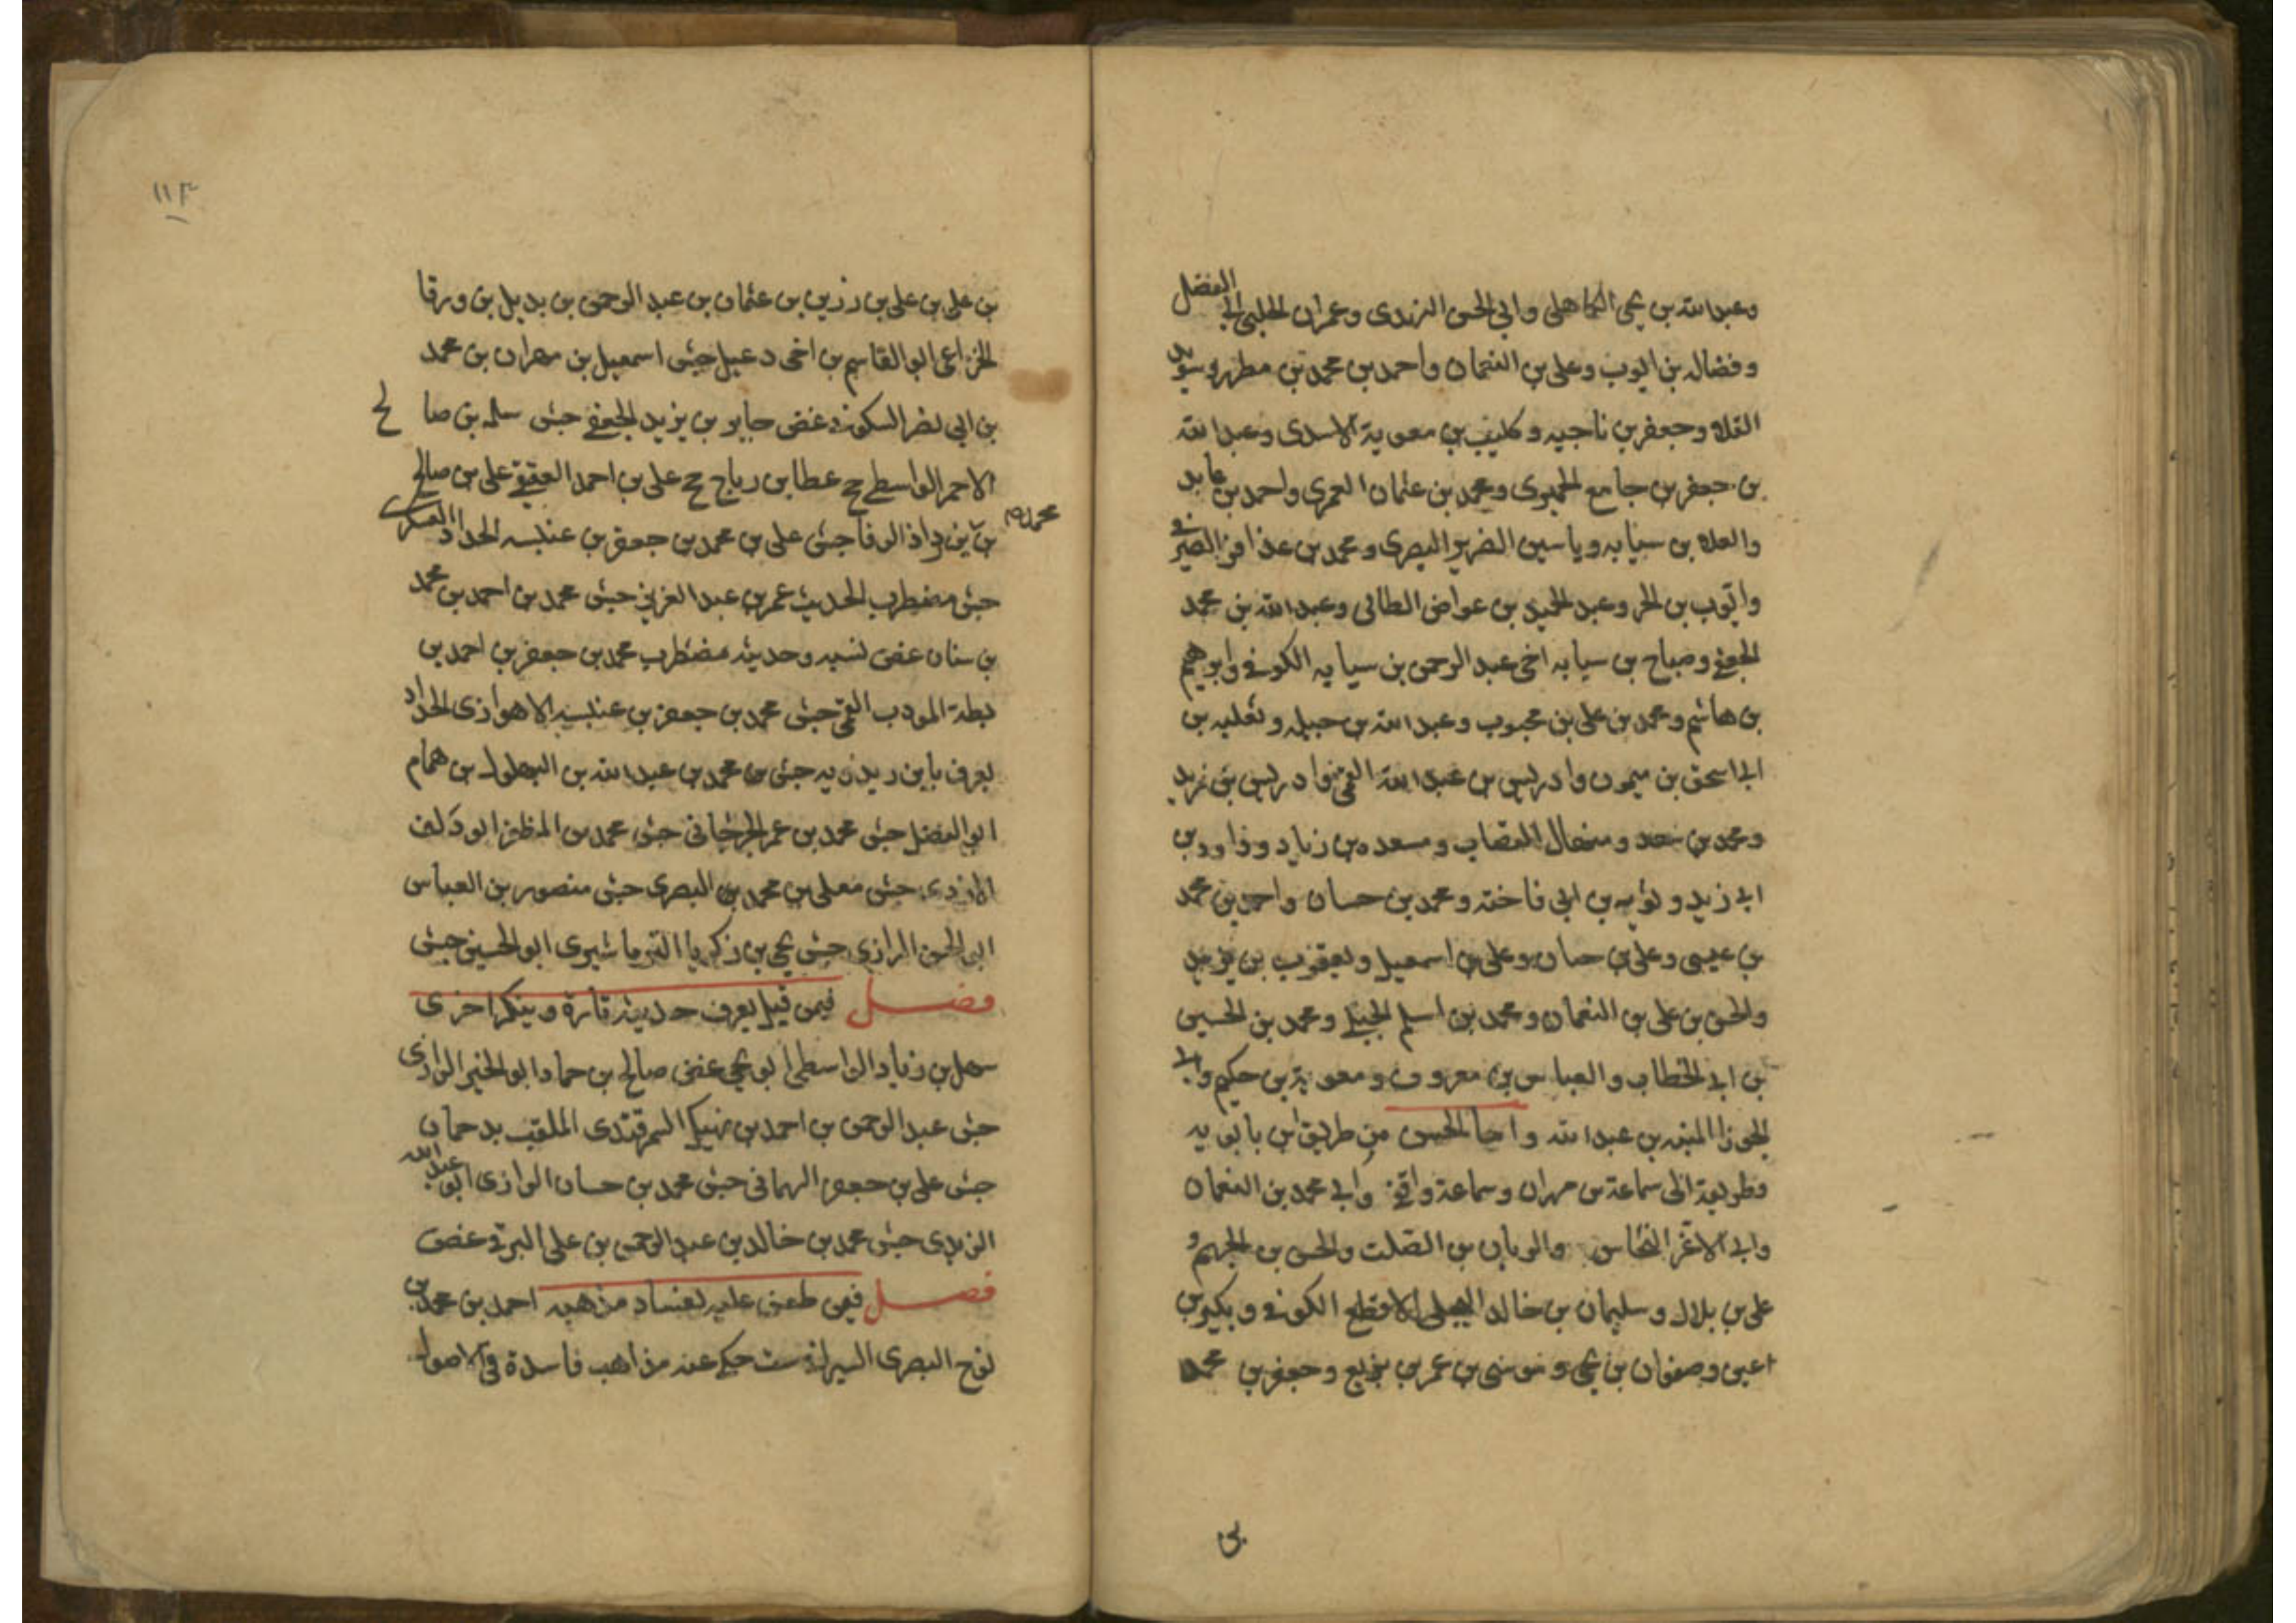 وعبد الله بن يحيى الكاهلي وابي الحسن النهدي وعمران الحلبي الفضل
وفضاله بن ايوب وعلى بن النعمان واحمد بن محمد بن مطهر وسويد
القلاء وجعفر بن ناجيه وكليب بن معوية الاسدى وعبد الله
بن جعفر بن جامع الحميرى ومحمد بن عثمان العمرى واحمد بن عايد
والعلاء بن سيابه وياسين الضرير البصرى ومحمد بن عذافر الصيرفي
وايوب بن الحر وعبد الحميد بن عواض الطائى وعبد الله بن محمد
الجعفي وصباح بن سيابه اخى عبد الرحمن بن سيابه الكوفي وابرهيم
بن هاشم ومحمد بن على بن محبوب وعبد الله بن جبله وثعلبه بن
ابى اسحق بن ميمون وادريس بن عبد الله القمى وادريس بن زيد
ومحمد بن سعد ومنحال القصاب ومسعده بن زياد وداود بن
ابى زيد وثوير بن ابى فاخته ومحمد بن حسان واحمد بن محمد
بن عيسى وعلى بن حسان وعلى بن اسمعيل ويعقوب بن يزيد
والحسن بن على بن النعمان ومحمد بن اسلم الجبلى ومحمد بن الحسين
بن ابى الخطاب والعباس بن معروف ومعوية بن حكيم وابى
الجوزا المنبه بن عبد الله واما الحسن من طريق ابن بابويه
وطريقه الى سماعة بن مهران وسماعة واقفى وابى محمد بن النعمان
وابى الاغر النخاس والريان بن الصلت والحسن بن الجهم و
على بن بلال وسليمان بن خالد البجلى الاقطع الكوفى وبكير بن
اعين وصفوان بن يحيى وموسى بن عمر بن بزيع وجعفر بن محمد
بن
١١٣
بن على بن على بن رزين بن عثمان بن عبد الرحمن بن بديل بن ورقا
الخزاعى ابو القاسم بن اخى دعبل جش اسمعيل بن مهران بن محمد
بن ابى نصر السكونى غض جابر بن يزيد الجعفى جش سلمه بن صالح
الاحمر الواسطى جخ عطا بن رياح جخ على بن احمد العقيقى على بن صالح
محمد
بن يزداد الرفا جش على بن محمد بن جعفر بن عنبسه الحداد العسكرى
جش مضطرب الحديث عمر بن عبد العزيز جش محمد بن احمد بن محمد
بن سنان غض نسبه وحديثه مضطرب محمد بن جعفر بن احمد بن
بطة المودب القمى جش محمد بن جعفر بن عنبسه الاهوازى الحداد
يعرف بابن ريذويه جش محمد بن عبد الله بن البهلول بن همام
ابو الفضل جش محمد بن عمر الجرجانى جش محمد بن المظفر ابو دلف
الازدى جش معلى بن محمد بن البصرى جش منصور بن العباس
ابو الحسن الرازى جش يحيى بن زكريا الترماشيرى ابو الحسين جش
فصل فيمن قيل يعرف حديثه تارة وينكر اخرى
سهل بن زياد الواسطى ابو يحيى غض صالح بن حماد ابو الخير الرازى
جش عبد الرحمن بن احمد بن نهيك السمرقندى الملقب بدحمان
جش على بن جعفر الهمانى جش محمد بن حسان الرازى ابو عبد الله
الزيدى جش محمد بن خالد بن عبد الرحمن بن على البرقى غض
فصل فيمن طعن عليه بفساد مذهبه احمد بن محمد بن
نوح البصرى السيرافى ست حكى عنه مذاهب فاسدة فى الاصول